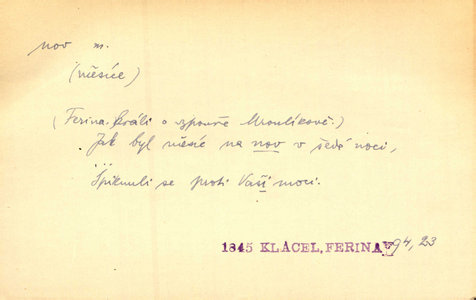 nov m.
(měsíce)
(Ferina králi o vzpouře Mroulíkově.)
Jak byl měsíc na nov v šedé noci,
...
Spiknuli se proti Vaší moci.
1845 KLÁCEL, FERINA 94, 23